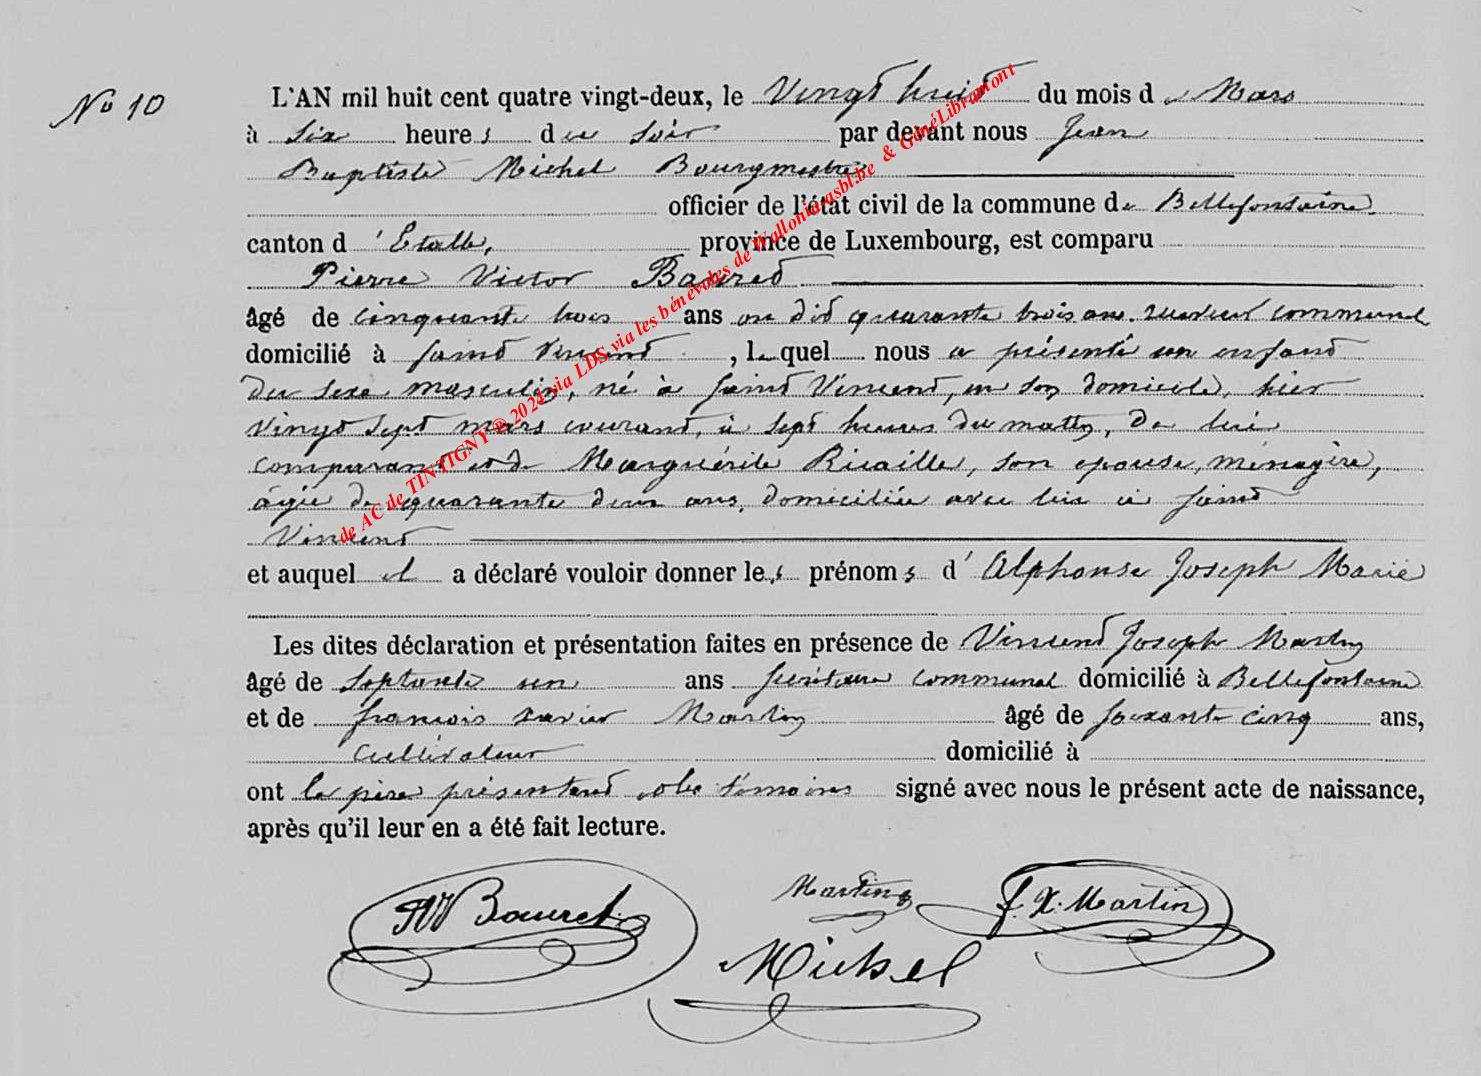 No 10
L'AN mil huit cent quatre vingt-deux, le Vingt huit du mois de Mars
à six heures du soir par devant nous Jean
Baptiste Michel Bourgmestre
officier de l'état civil de la commune de Bellefontaine
canton d'Etalle, province de Luxembourg, est comparu
Pierre Victor Bauret
âgé de cinquante trois ans ou dit quarante trois ans communal
domicilié à Saint Vincent, lequel nous a présenté un enfant
du sexe masculin, né à Saint Vincent, en son domicile, hier
vingt sept mars courant, à sept heures du matin, de lui
comparant et de Marguérite Ricaille, son epouse, ménagère,
âgée de quarante deux ans, domiciliée avec lui à Saint
Vincent
et auquel il a déclaré vouloir donner les prénoms d'Alphonse Joseph Marie
Les dites déclaration et présentation faites en présence de Vincent Joseph Martin
âgé de septante un ans secrétaire communal domicilié à Bellefontaine
et de françois xavier Martin âgé de soixante cinq ans,
cultivateur domicilié à
ont le père présentant et les témoins signé avec nous le présent acte de naissance,
après qu'il leur en a été fait lecture.
Bauret Martin f. X. Martin
Michel
de AC de TINTIGNY @ 2024 via LDS via les bénévoles de Walloniaasbl.be & GénéLibramont